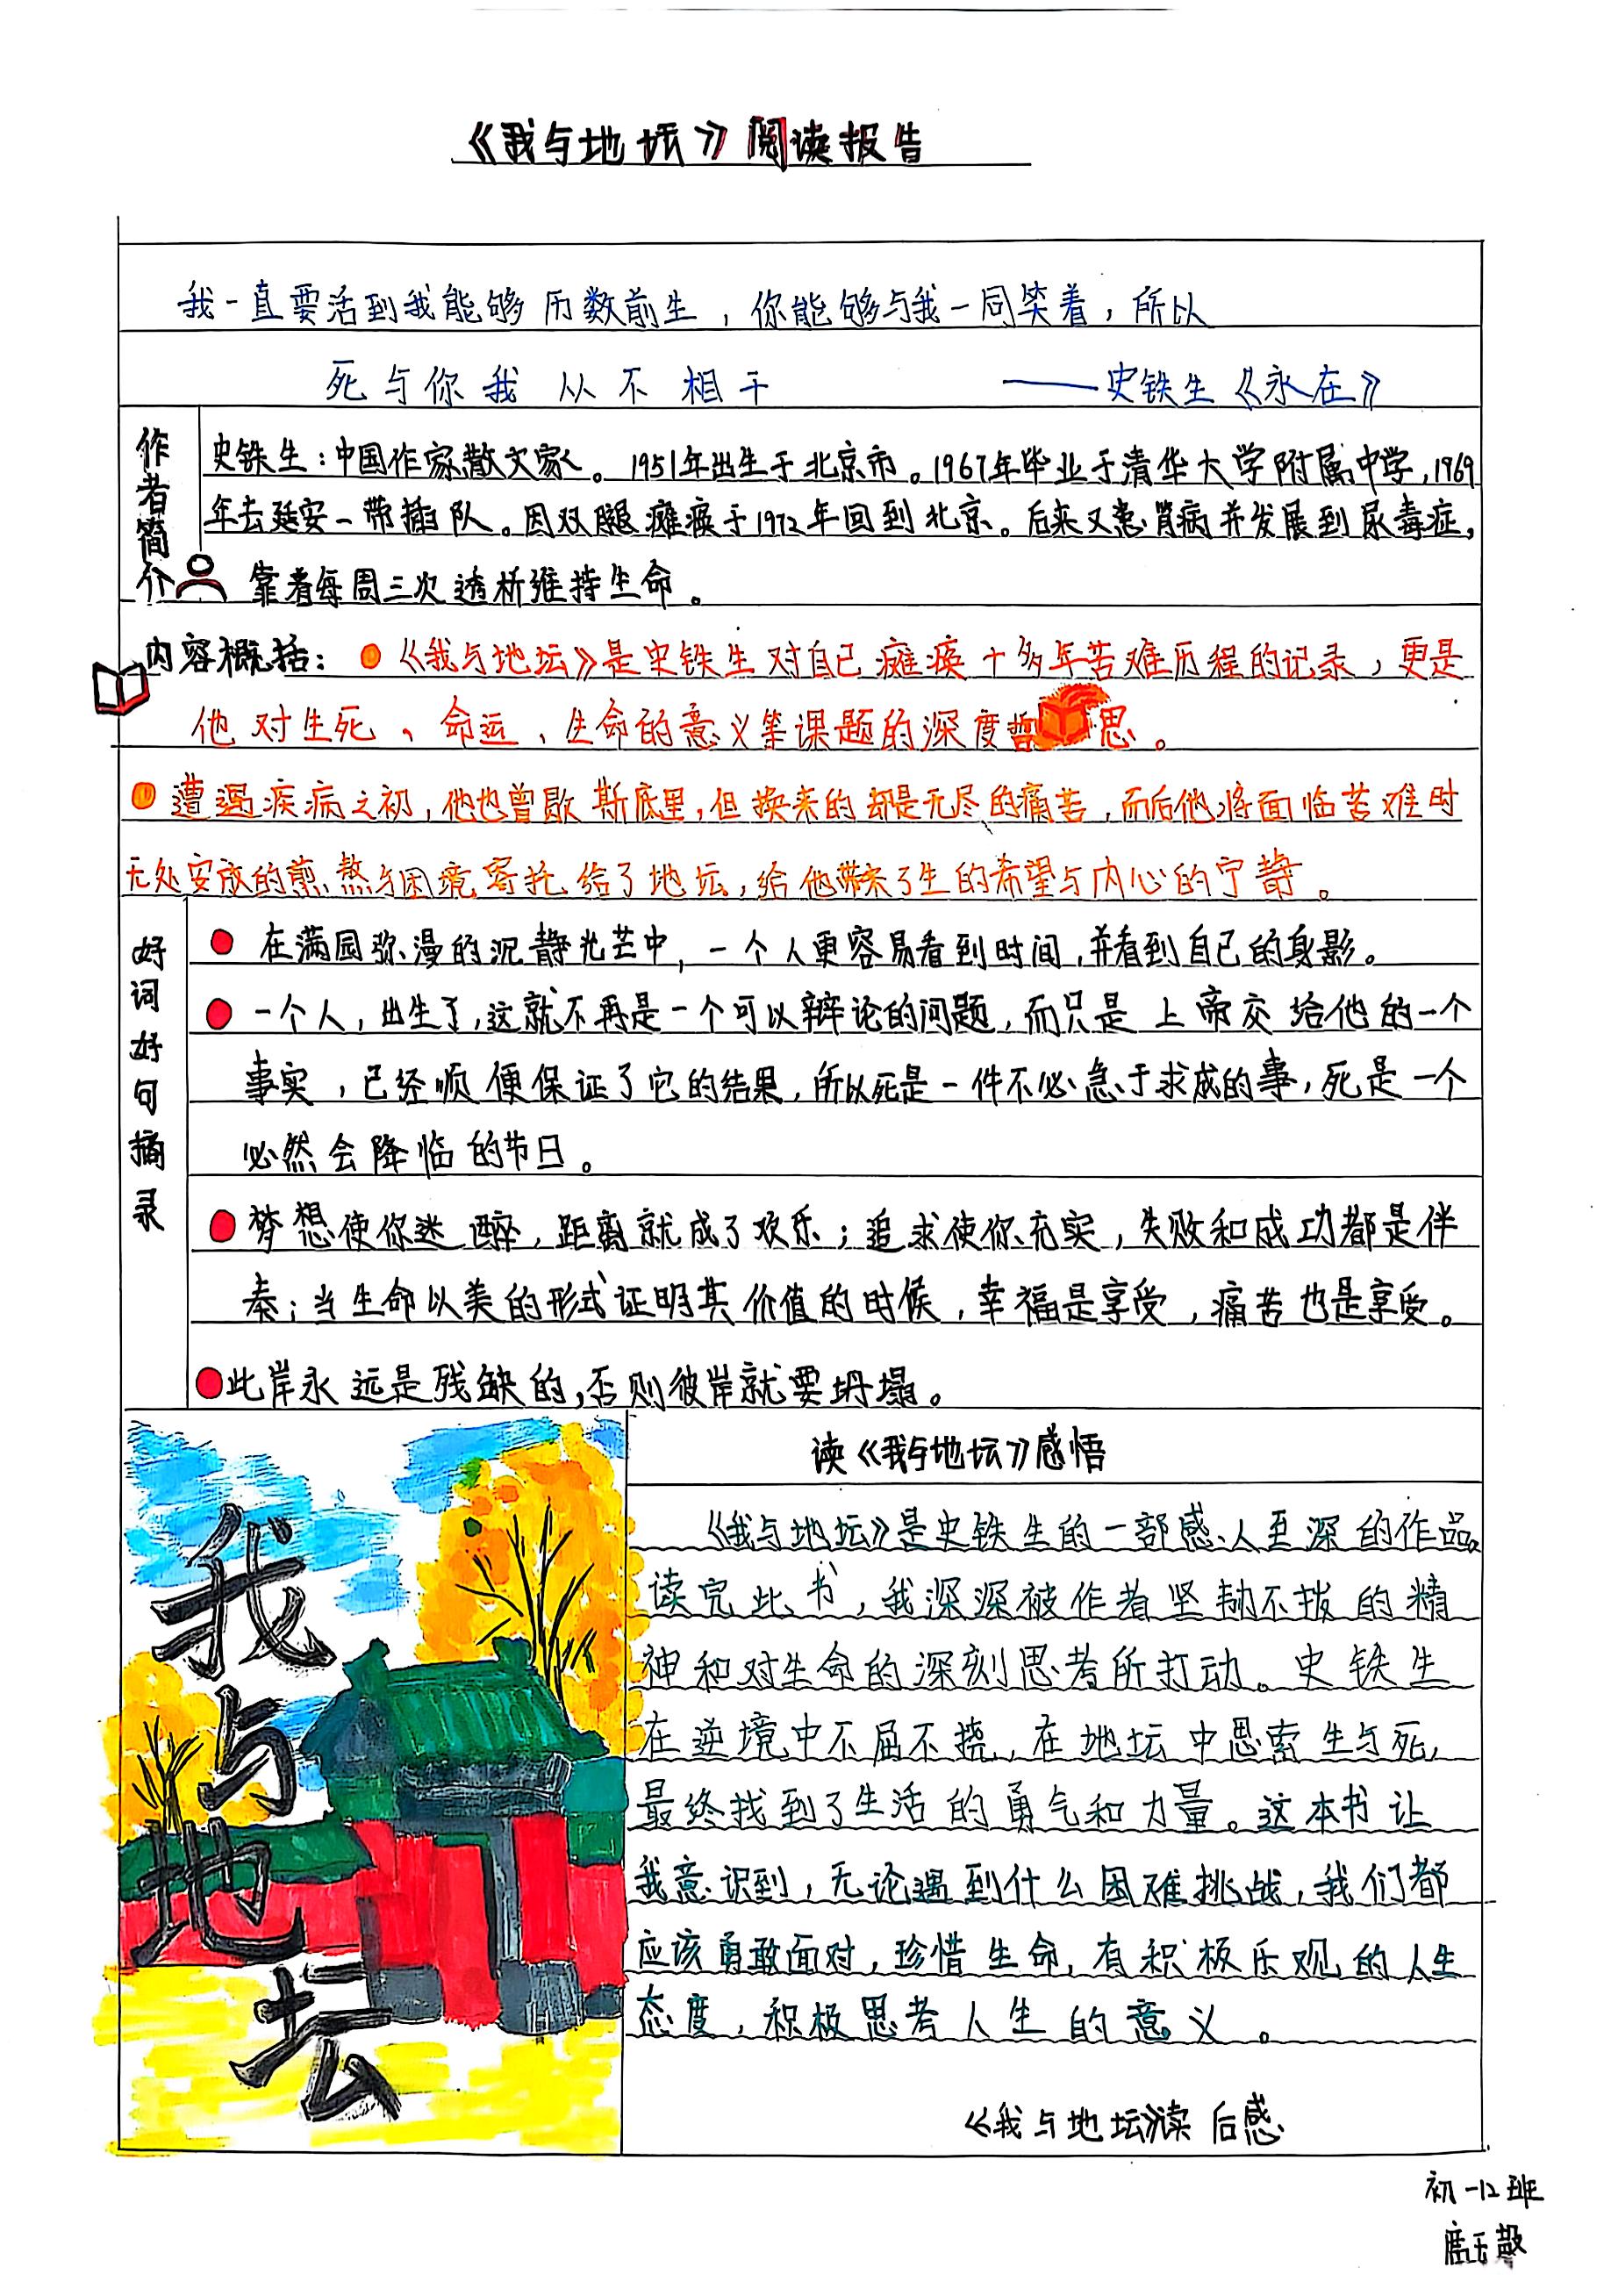 《我与地坛》阅读报告
我一直要活到我能够历数前生，你能够与我一同笑着，所以
死与你我从不相干 ——史铁生《永在》
作者简介
史铁生：中国作家散文家。1951年出生于北京市。1967年毕业于清华大学附属中学，1969
年去延安一带插队。因双腿瘫痪于1972年回到北京。后来又患肾病并发展到尿毒症，
靠着每周三次透析维持生命。
内容概括：《我与地坛》是史铁生对自己瘫痪十多年苦难历程的记录，更是
他对生死、命运、生命的意义等课题的深度哲思。
遭遇疾病之初，他也曾歇斯底里，但换来的却是无尽的痛苦，而后他将面临苦难时
无处安放的煎熬与困境寄托给了地坛，给他带来了生的希望与内心的宁静。
好词好句摘录
在满园弥漫的沉静光芒中，一个人更容易看到时间，并看到自己的身影。
一个人，出生了，这就不再是一个可以辩论的问题，而只是上帝交给他的一个
事实，已经顺便保证了它的结果，所以死是一件不必急于求成的事，死是一个
必然会降临的节日。
梦想使你迷醉，距离就成了欢乐；追求使你充实，失败和成功都是伴
奏；当生命以美的形式证明其价值的时候，幸福是享受，痛苦也是享受。
此岸永远是残缺的，否则彼岸就要坍塌。
我与地坛
读《我与地坛》感悟
《我与地坛》是史铁生的一部感人至深的作品。
读完此书，我深深被作者坚韧不拔的精
神和对生命的深刻思考所打动。史铁生
在逆境中不屈不挠，在地坛中思索生与死，
最终找到了生活的勇气和力量。这本书让
我意识到，无论遇到什么困难挑战，我们都
应该勇敢面对，珍惜生命，有积极乐观的人生
态度，积极思考人生的意义。
《我与地坛》读后感
初一12班